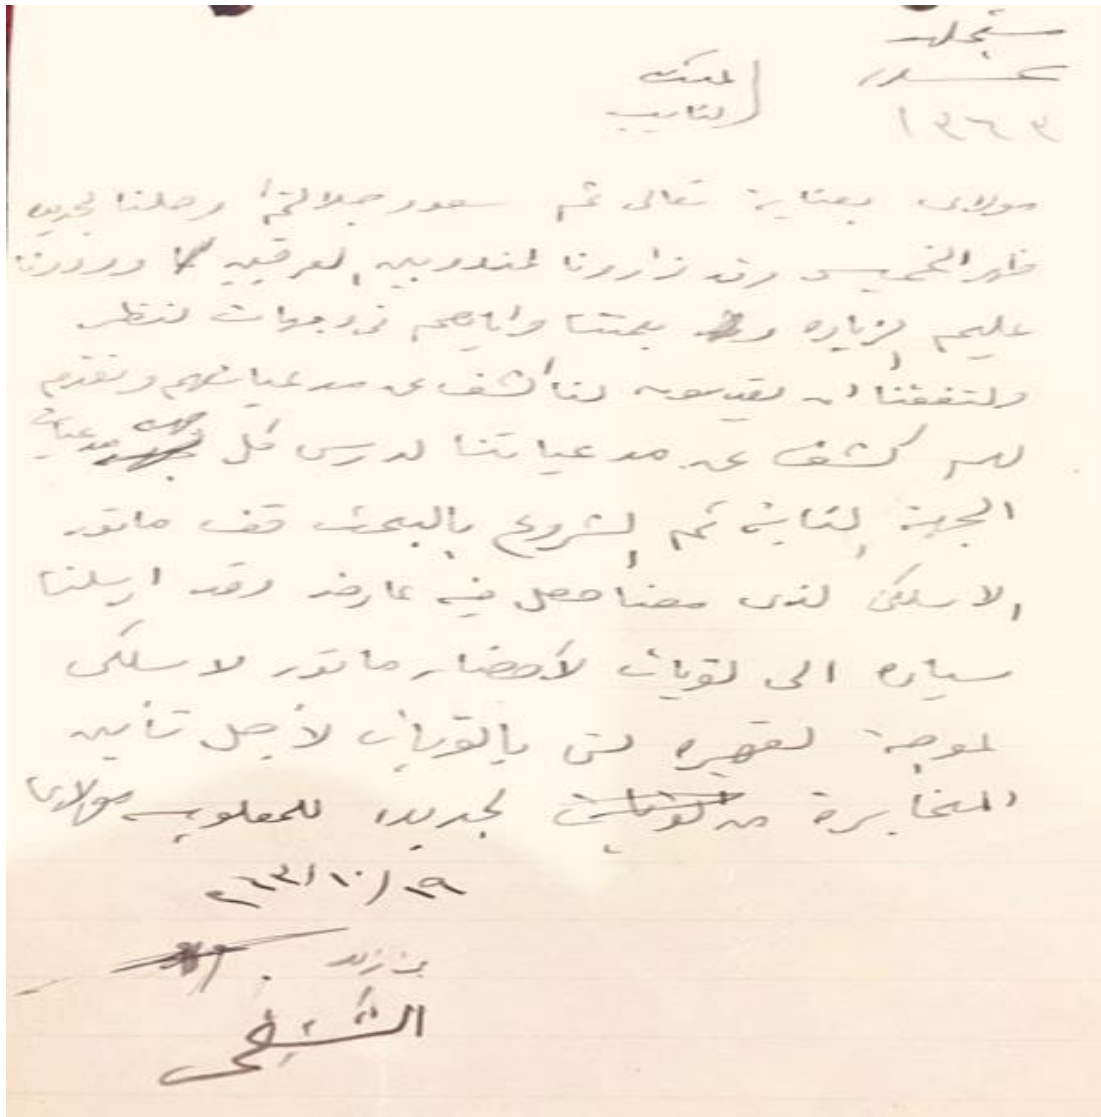 مستعجله
عدد الملك
١٣٦٣ النايب
مولاى بعناية تعالى ثم سعود جلالتكم وصلنا لجديده
ظهر الخميس وقد زارونا لمندوبين لعرقيين وردينا
عليهم الزياره بحثنا واياهم فى وجهات لنظر
ولتفقنا ان يقدمون لنا كشف عن مدعياتهم ونقدم
لهم كشف عن مدعياتنا لدرس كل جهت مدعيات
الجهة الثانية ثم الشروع بالبحث قف ماتور
الاسلكى لذى معنا حصل فيه عارض وقد ارسلنا
سياره الى لقويات لأحضار ماتور لاسلكى
لموجة لقصيره لتى بالقريات لأجل تأمين
المخابرة من لجديده للمعلوميه مولاى
٣٦٣/١٠/١٩
بن زيد
الشنيفى